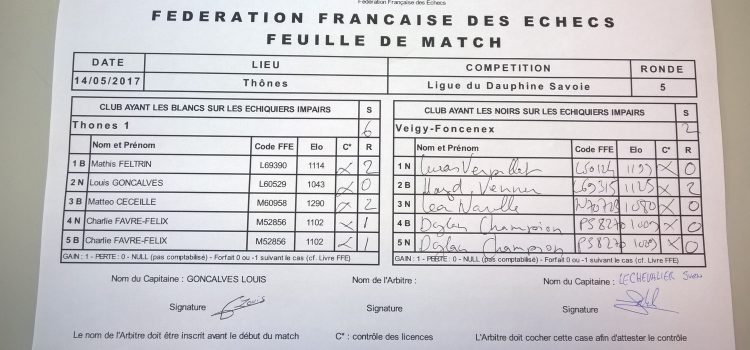 Fédération Française des Echecs
FEDERATION FRANCAISE DES ECHECS
FEUILLE DE MATCH
DATE LIEU COMPETITION RONDE
14/05/2017 Thônes Ligue du Dauphine Savoie 5
CLUB AYANT LES BLANCS SUR LES ECHIQUIERS IMPAIRS S
Thones 1 6
Nom et Prénom Code FFE Elo C* R
1 B Mathis FELTRIN L69390 1114 X 2
2 N Louis GONCALVES L60529 1043 X 0
3 B Matteo CECEILLE M60958 1290 X 2
4 N Charlie FAVRE-FELIX M52856 1102 X 1
5 B Charlie FAVRE-FELIX M52856 1102 X 1
GAIN : 1 - PERTE : 0 - NULL (pas comptabilisé) - Forfait 0 ou -1 suivant le cas (cf. Livre FFE)
CLUB AYANT LES NOIRS SUR LES ECHIQUIERS IMPAIRS S
Veigy-Foncenex 2
Nom et Prénom Code FFE Elo C* R
1 N Lucas X 0
2 B L69315 1125 X 2
3 N Lea 1080 X 0
4 B Dylan Champion X 0
5 N Dylan Champion X 0
GAIN : 1 - PERTE : 0 - NULL (pas comptabilisé) - Forfait 0 ou -1 suivant le cas (cf. Livre FFE)
Nom du Capitaine : GONCALVES LOUIS Nom de l'Arbitre : Nom du Capitaine : LECHEVALIER
Signature Louis Signature Signature
Le nom de l'Arbitre doit être inscrit avant le début du match C* : contrôle des licences L'Arbitre doit cocher cette case afin d'attester le contrôle